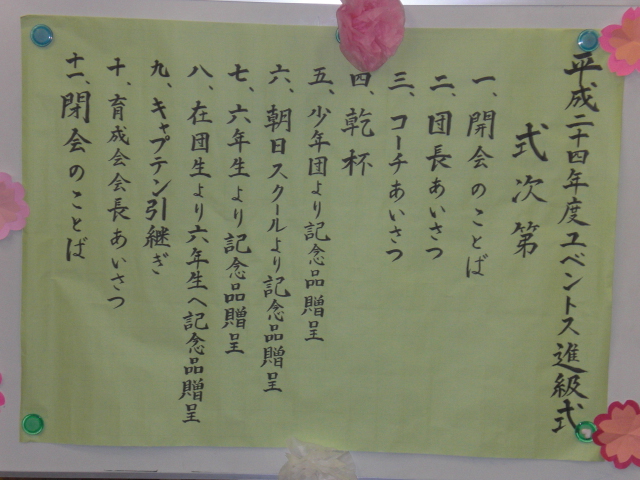 平成二十四年度ユベントス進級式
式次第
一、開会のことば
二、団長あいさつ
三、コーチあいさつ
四、乾杯
五、少年団より記念品贈呈
六、朝日スクールより記念品贈呈
七、六年生より記念品贈呈
八、在団生より六年生へ記念品贈呈
九、キャプテン引継ぎ
十、育成会会長あいさつ
十一、閉会のことば